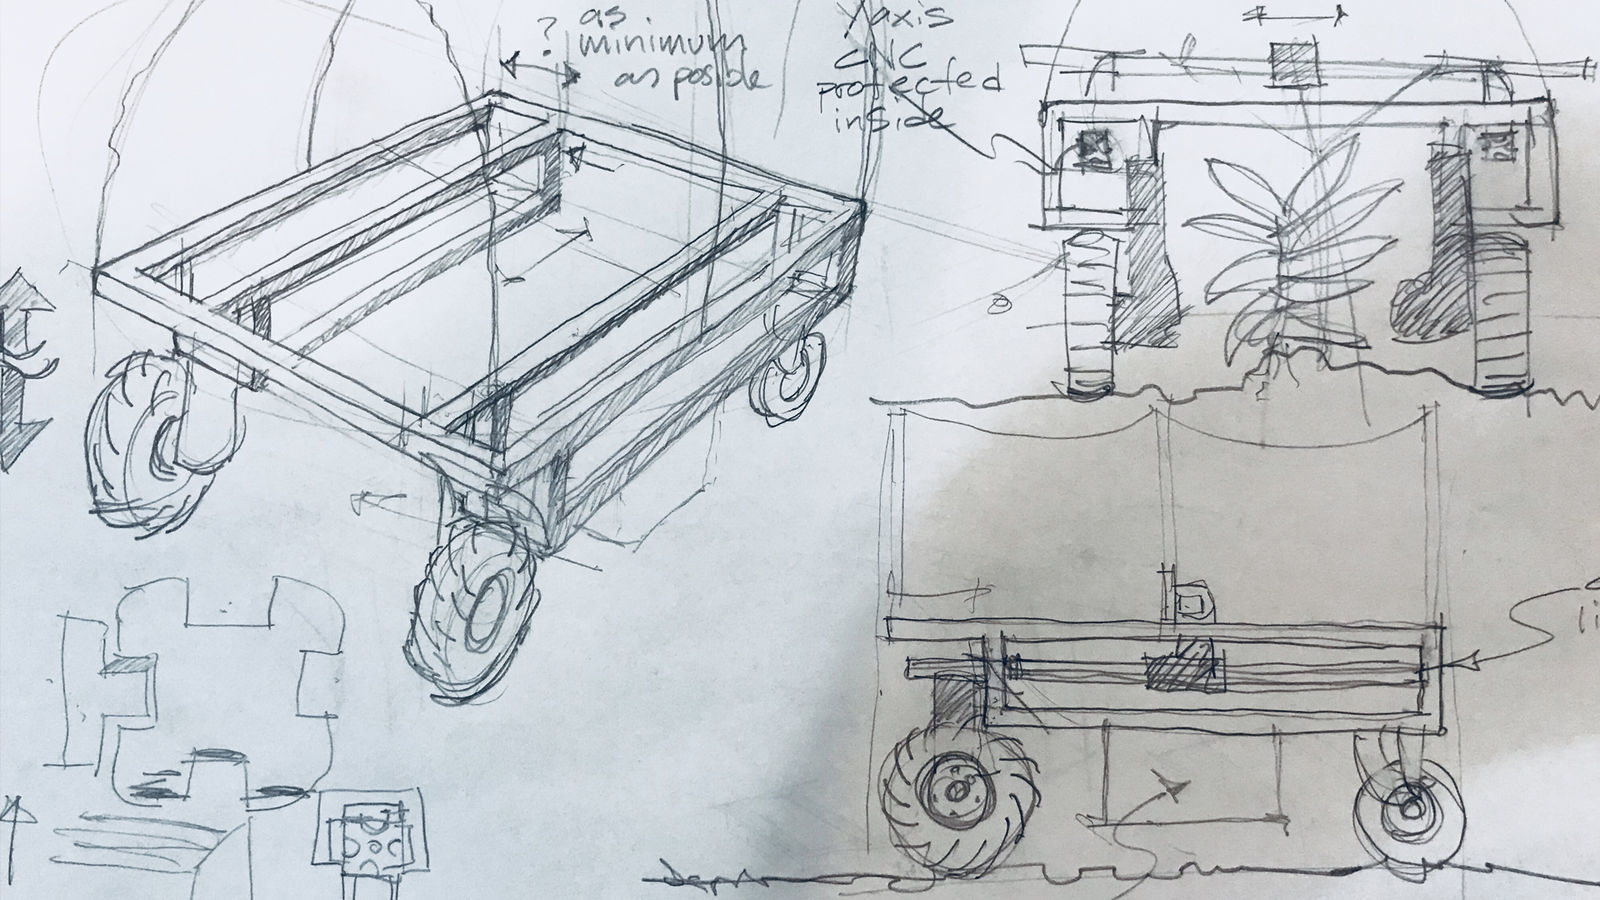 ?
as
minimum
as posible
Y axis
CNC
protected
inside